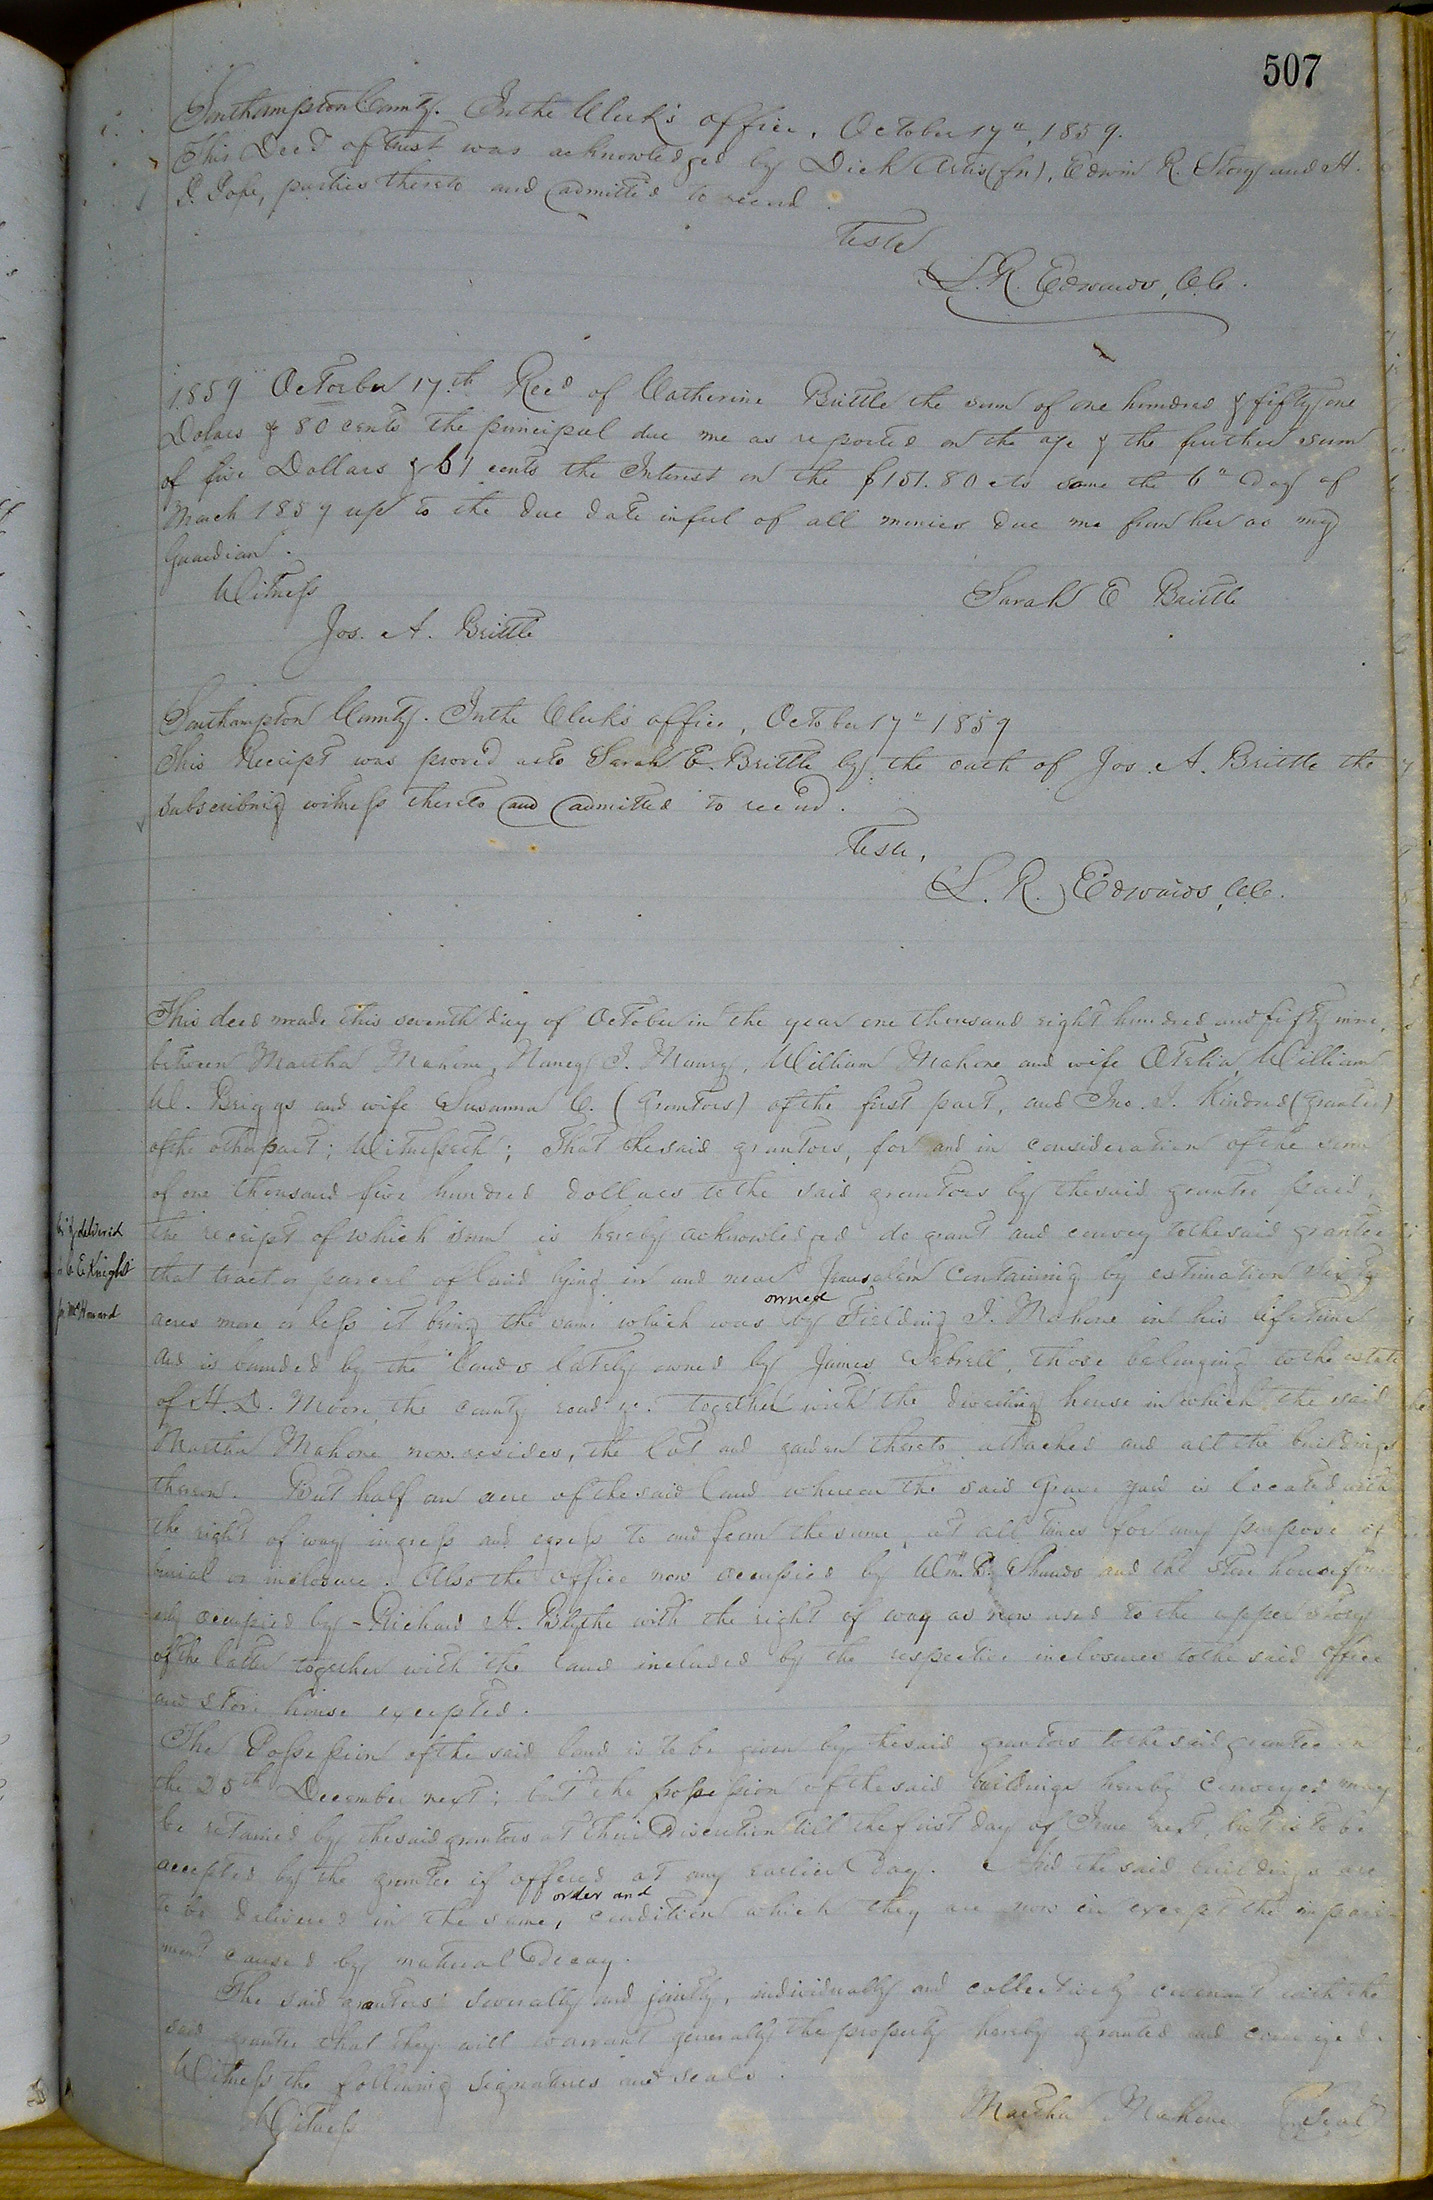 507
Southampton County. In the Clerk's office, October 17", 1859.
This Deed of Trust was acknowledged by Dick Artis (fn), Edwin R. Story and H.
P. Pope, parties thereto and admitted to record.
Teste
L. R. Edwards, C.C.
1859 October 17th Recd of Catherine Brittle the sum of one hundred & fifty one
Dolars & 80 cents the principal due me as reported on the a/c & the further sum
of five Dollars & 61 cents the Interest on the $151.80 cts some the 6" Day of
March 1859 up to the due date in full of all monies due me from her as my
Guardian.
Witness
Sarah E Brittle
Jos. A. Brittle
Southampton County. In the Clerk's office, October 17" 1859
This Receipt was proved as to Sarah E. Brittle by the oath of Jos. A. Brittle the
subscribing witness thereto and admitted to record.
Teste,
L. R. Edwards, C.C.
This deed made this seventh day of October in the year one thousand eight hundred and fifty nine,
between Martha Mahone, Nancy J. Murry, William Mahone and wife Otelia, William
W. Briggs and wife Susanna C. (Grantors) of the first part, and Jno. J. Kindred (Grantee)
of the other part; Witnesseth; That the said grantors, for and in consideration of the sum
of one thousand five hundred dollars to the said grantors by the said grantee paid,
the receipt of which sum is hereby acknowledged do grant and convey to the said grantee
that tract or parcel of land lying in and near Jerusalem containing by estimation sixty
acres more or less it being the same which was owned by Fielding J. Mahone in his lifetime
and is bounded by the lands lately owned by James Sebrell, those belonging to the estate
of H. D. Moore, the county road &c. together with the dwelling house in which the said
Martha Mahone now resides, the lot and garden thereto attached and all the buildings
thereon. But half an acre of the said land whereon the said Grave yard is located with
the right of way ingress and egress to and from the same at all times for any purpose of
burial or inclosure. Also the office now occupied by Wm. B. Shands and the store house form
erly occupied by - Richard H. Blythe with the right of way as now used to the upper story
of the latter together with the land included by the respective inclosures to the said office
and store house excepted.
The Possession of the said land is to be given by the said grantors to the said grantee on
the 25th December next; but the possession of the said buildings hereby conveyed may
be retained by the said grantors at their Discretion till the first day of June next, but is to be
accepted by the grantee if offered at any earlier Day. And the said buildings are
to be delivered in the same, order and condition which they are now in except the impair
ment caused by natural Decay.
The said grantors severally and jointly, individually and collectively covenant with the
said grantee that they will warrant generally the property hereby granted and conveyed.
Witness the following signatures and seals.
Witness
Martha Mahone (Seal)
delivered
C. E. Knight
for Mr Howard